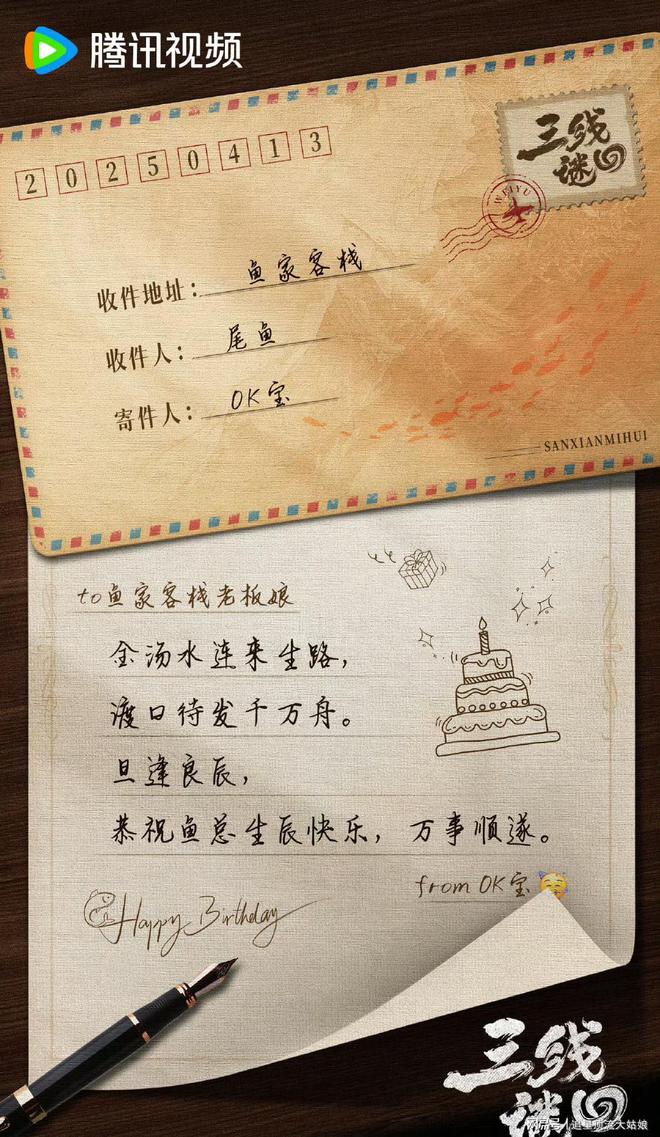 腾讯视频
20250413
三线
谜回
WEIYU
收件地址：鱼家客栈
收件人：尾鱼
寄件人：OK宝
SANXIANMIHUI
to鱼家客栈老板娘
金汤水连来生路，
渡口待发千万舟。
旦逢良辰，
恭祝鱼总生辰快乐，万事顺遂。
from OK宝
Happy Birthday
三线
谜回
搜狐号@追星顺流大姑娘